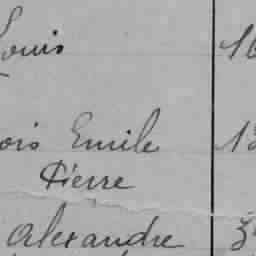 Louis
ois Emile
Pierre
Alexandre